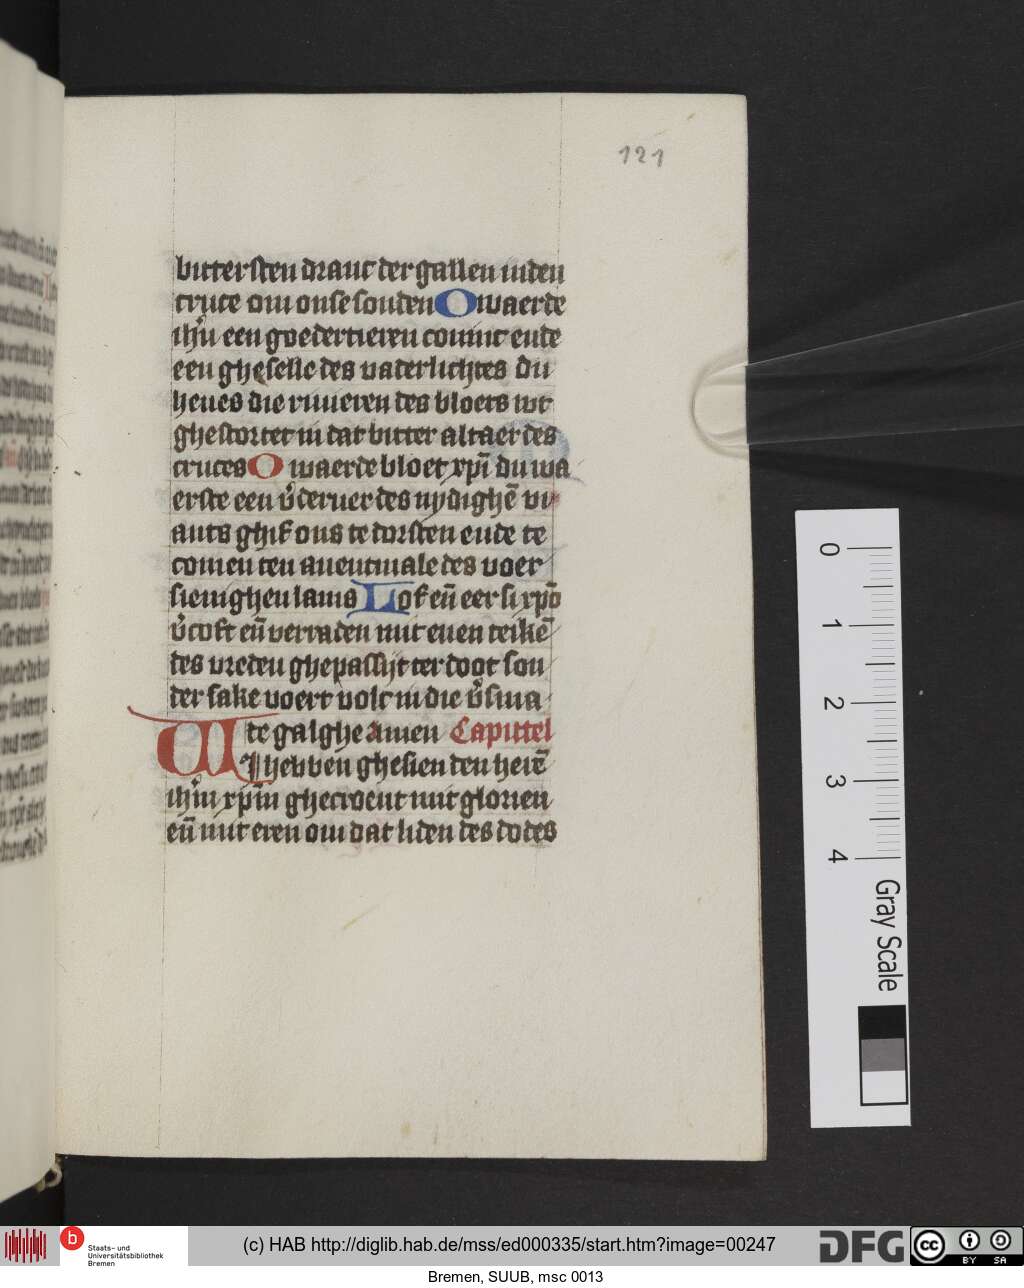 121
bittersten dranc der gallen inden
cruce om onse sonden O waerde
ih̄u een goedertieren comnt ende
een gheselle des vaterlichtes du
heues die riuieren des bloets wt
ghestortet in dat bitter altaer des
cruces O waerde bloet xp̄i du wa
erste een v̄deruer des nydighē vi
ants ghif ons te dorsten ende te
comen ten auentmale des voer
sienighen lams Lof en̄ eer si xp̄o
v̄coft en̄ verraden mit enen teikē
des vreden ghepassijt ter doot son
der sake voert volc in die v̄sma
te galghe amen Capittel
Wi hebben ghesien den herē
ih̄m xp̄m ghecroent mit glorien
en̄ mit eren om dat liden des dodes
0
1
2
3
4
Gray Scale
b
Staats- und
Universitätsbibliothek
Bremen
(c) HAB http://diglib.hab.de/mss/ed000335/start.htm?image=00247
DFG
cc
BY SA
Bremen, SUUB, msc 0013